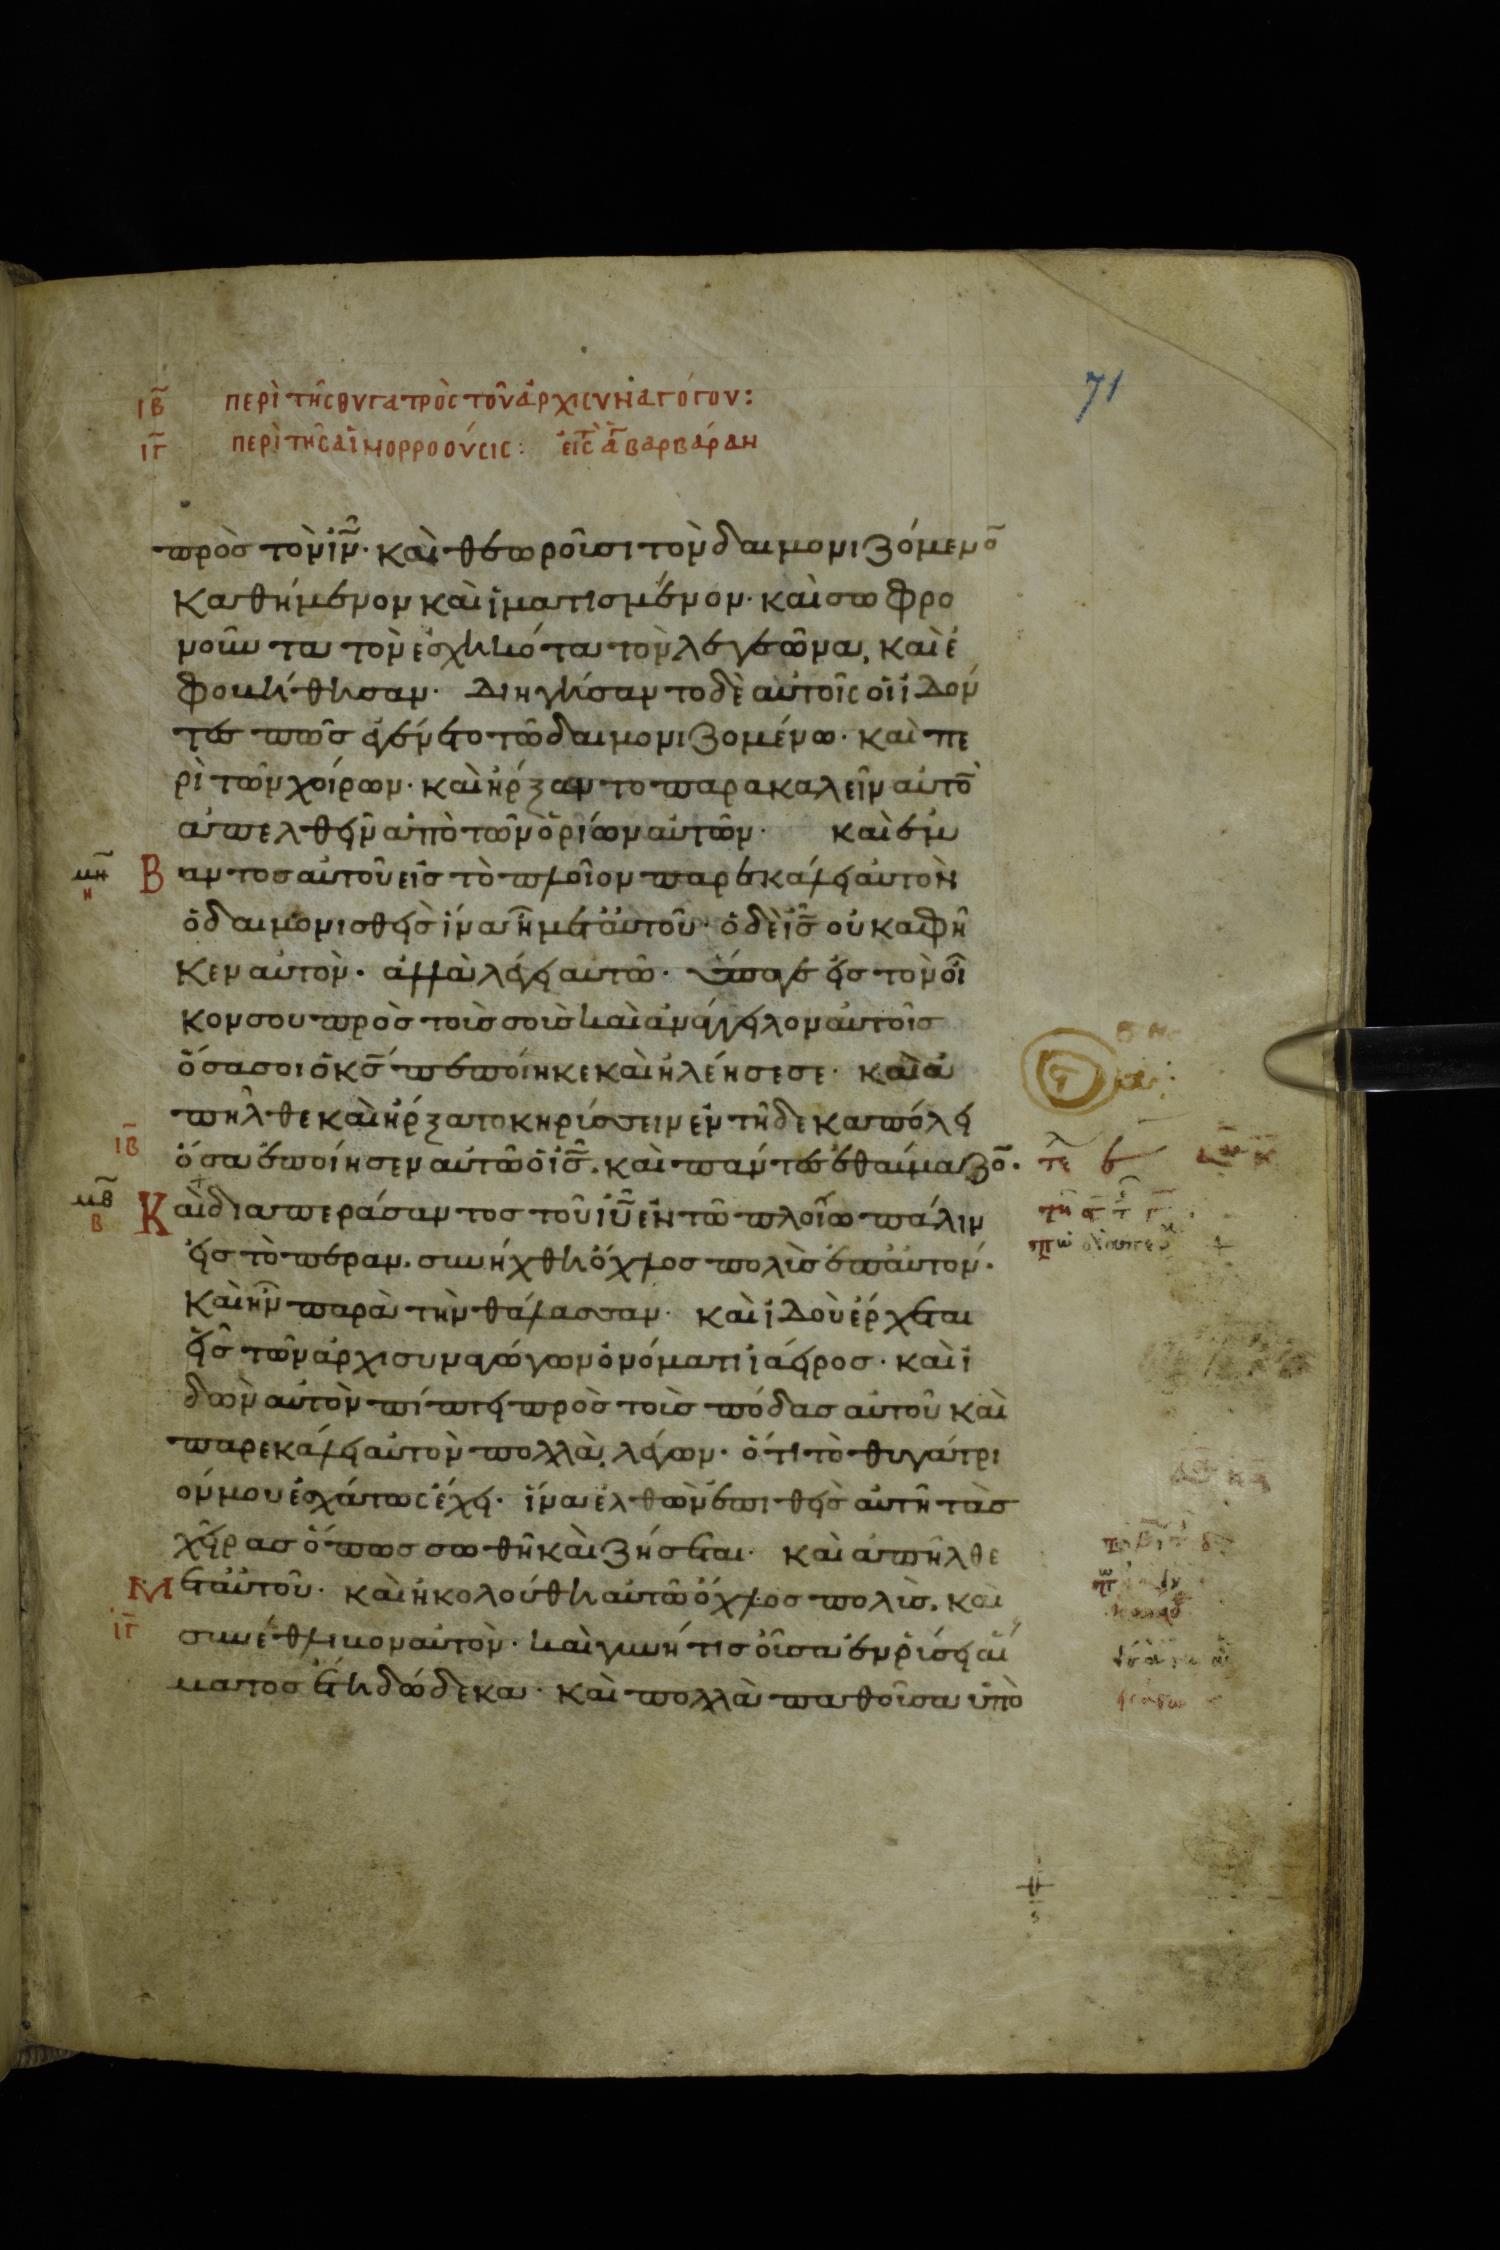 71
ιβ περὶ τῆς θυγατρὸς τοῦ ἀρχισυναγόγου:
ιγ περὶ τῆς αἱμορροούσις: εἰς τ ἁγ βαρβάραν
πρὸς τὸν ιν̅· καὶ θεωροῦσι τὸν δαιμονιζόμενο̅
καθήμενον καὶ ἱματισμένον· καὶ σωφρο
νοῦντα τὸν ἐσχηκότα τὸν λεγεῶνα, καὶ ἐ
φοβήθησαν· Διηγήσαντο δὲ αὐτοῖς οἱ ἰδόν
τες πῶς ἐγένετο τῶ δαιμονιζομένω· καὶ πε
ρὶ τῶν χοίρων· καὶ ἤρξαντο παρακαλεῖν αὐτὸ̅
ἀπελθεῖν ἀπὸ τῶν ὁρίων αὐτῶν· καὶ ἐμ
μη η Βαντος αὐτοῦ εἰς τὸ πλοῖον παρεκάλει αὐτὸν
ὁ δαιμονισθεὶς ἵνα ἦ μετ' αὐτοῦ· ὁ δὲ ις̅ οὐκ ἀφῆ
κεν αὐτὸν· ἀλλὰ λέγει αὐτῶ· ὕπαγε εἰς τὸν οἶ
κον σου πρὸς τοὺς σοὺς καὶ ἀνάγγειλον αὐτοῖς
ὅσα σοι ὁ κς̅ πεποίηκε καὶ ἠλέησε σε· καὶ ἀ
πῆλθε καὶ ἤρξατο κηρύσσειν ἐν τῆ δεκαπόλει
ιβ ὅσα ἐποίησεν αὐτῶ ὁ ις̅. καὶ πάντες ἐθαύμαζο̅.
μθ β Καὶ διαπεράσαντος τοῦ ιυ̅ ἐν τῶ πλοίω πάλιν
εἰς τὸ πέραν. συνήχθη ὄχλος πολὺς ἐπ' αὐτον.
καὶ ἦν παρὰ τὴν θάλασσαν· καὶ ἰδοὺ ἔρχεται
εἷς τῶν ἀρχισυναγώγων ὀνόματι ἰάειρος· καὶ ἰ
δὼν αὐτὸν πίπτει πρὸς τοὺς πόδας αὐτοῦ καὶ
παρεκάλει αὐτὸν πολλὰ, λέγων· ὅτι τὸ θυγάτρι
όν μου ἐσχάτως ἔχει· ἵνα ἐλθὼν ἐπιθεὶς αὐτῆ τὰς
χεῖρας ὅπως σωθῆ καὶ ζήσεται· καὶ ἀπῆλθε
Μετ' αὐτοῦ· καὶ ἠκολούθη αὐτῶ ὄχλος πολὺς. καὶ
ιγ συνέθλιβον αὐτὸν· καὶ γυνή τις οὖσα ἐν ρύσει αἵ
ματος ἔτη δώδεκα· καὶ πολλὰ παθοῦσα ὑπὸ